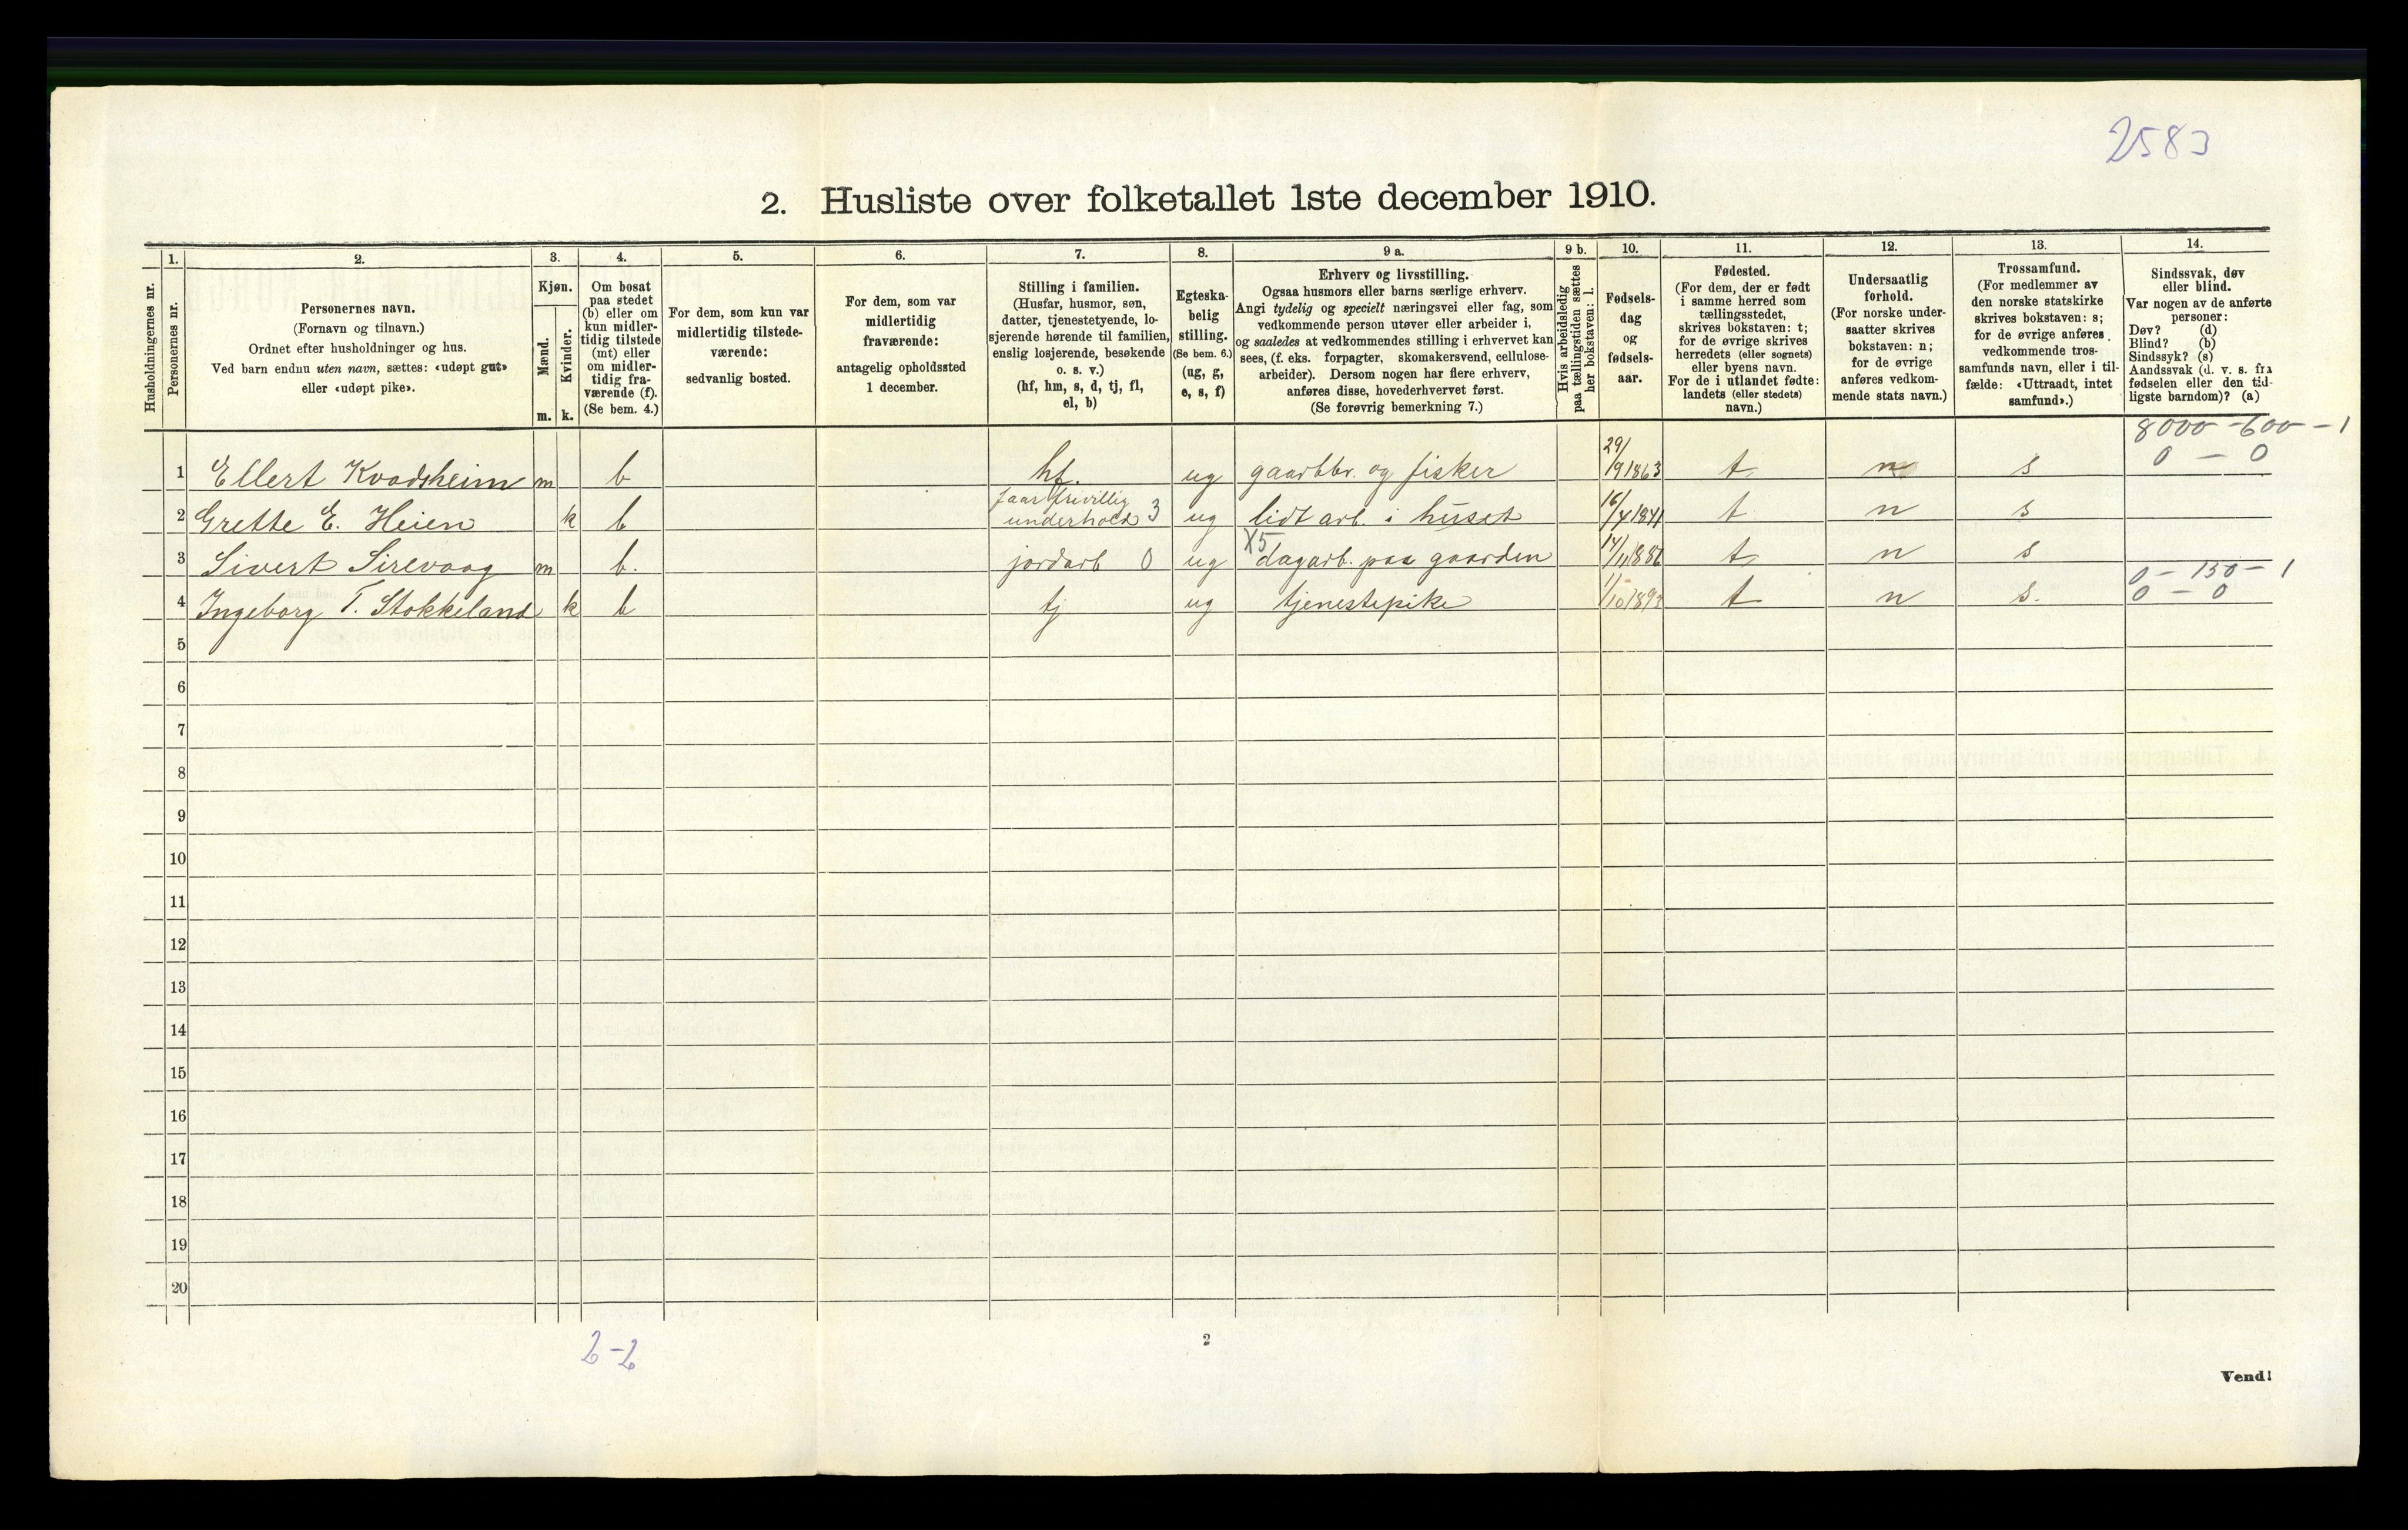 2583
2. Husliste over folketallet 1ste december 1910.
Husholdningernes nr.
1.
Personernes nr.
2.
Personernes navn.
(Fornavn og tilnavn.)
Ordnet efter husholdninger og hus.
Ved barn endnu uten navn, sættes: «udøpt gut»
eller «udøpt pike».
3.
Kjøn.
Mænd.
Kvinder.
m. k.
4.
Om bosat
paa stedet
(b) eller om
kun midler-
tidig tilstede
(mt) eller
om midler-
tidig fra-
værende (f).
(Se bem. 4.)
5.
For dem, som kun var
midlertidig tilstede-
værende:
sedvanlig bosted.
6.
For dem, som var
midlertidig
fraværende:
antagelig opholdssted
1 december.
7.
Stilling i familien.
(Husfar, husmor, søn,
datter, tjenestetyende, lo-
sjerende hørende til familien,
enslig losjerende, besøkende
o. s. v.)
(hf, hm, s, d, tj, fl,
el, b)
8.
Egteska-
belig
stilling.
(Se bem. 6.)
(ug, g,
e, s, f)
9 a.
Erhverv og livsstilling.
Ogsaa husmors eller barns særlige erhverv.
Angi tydelig og specielt næringsvei eller fag, som
vedkommende person utøver eller arbeider i,
og saaledes at vedkommendes stilling i erhvervet kan
sees, (f. eks. forpagter, skomakersvend, cellulose-
arbeider). Dersom nogen har flere erhverv,
anføres disse, hovederhvervet først.
(Se forøvrig bemerkning 7.)
9 b.
Hvis arbeidsledig
paa tællingstiden sættes
her bokstaven: l.
10.
Fødsels-
dag
og
fødsels-
aar.
11.
Fødested.
(For dem, der er født
i samme herred som
tællingsstedet,
skrives bokstaven: t;
for de øvrige skrives
herredets (eller sognets)
eller byens navn.
For de i utlandet fødte:
landets (eller stedets)
navn.)
12.
Undersaatlig
forhold.
(For norske under-
saatter skrives
bokstaven: n;
for de øvrige
anføres vedkom-
mende stats navn.)
13.
Trossamfund.
(For medlemmer av
den norske statskirke
skrives bokstaven: s;
for de øvrige anføres
vedkommende tros-
samfunds navn, eller i til-
fælde: «Uttraadt, intet
samfund».)
14.
Sindssvak, døv
eller blind.
Var nogen av de anførte
personer:
Døv? (d)
Blind? (b)
Sindssyk? (s)
Aandssvak (d. v. s. fra
fødselen eller den tid-
ligste barndom)? (a)
8000 - 600 - 1
0 - 0
1 Ellert Kvadsheim m b hf. ug gaardbr. og fisker 29/9 1863 t n s
faar frivillig
2 Grette E. Heien k b underhold 3 ug lidt arb. i huset 16/4 1841 t n s
X5
3 Sivert Sirevaag m b. jordarb 0 ug dagarb. paa gaarden 14/11 1886 t n s
0 - 150 - 1
4 Ingeborg T. Stokkeland k b tj ug tjenestepike t n s. 0 - 0
5
6
7
8
9
10
11
12
13
14
15
16
17
18
19
20
2-2
2
Vend!